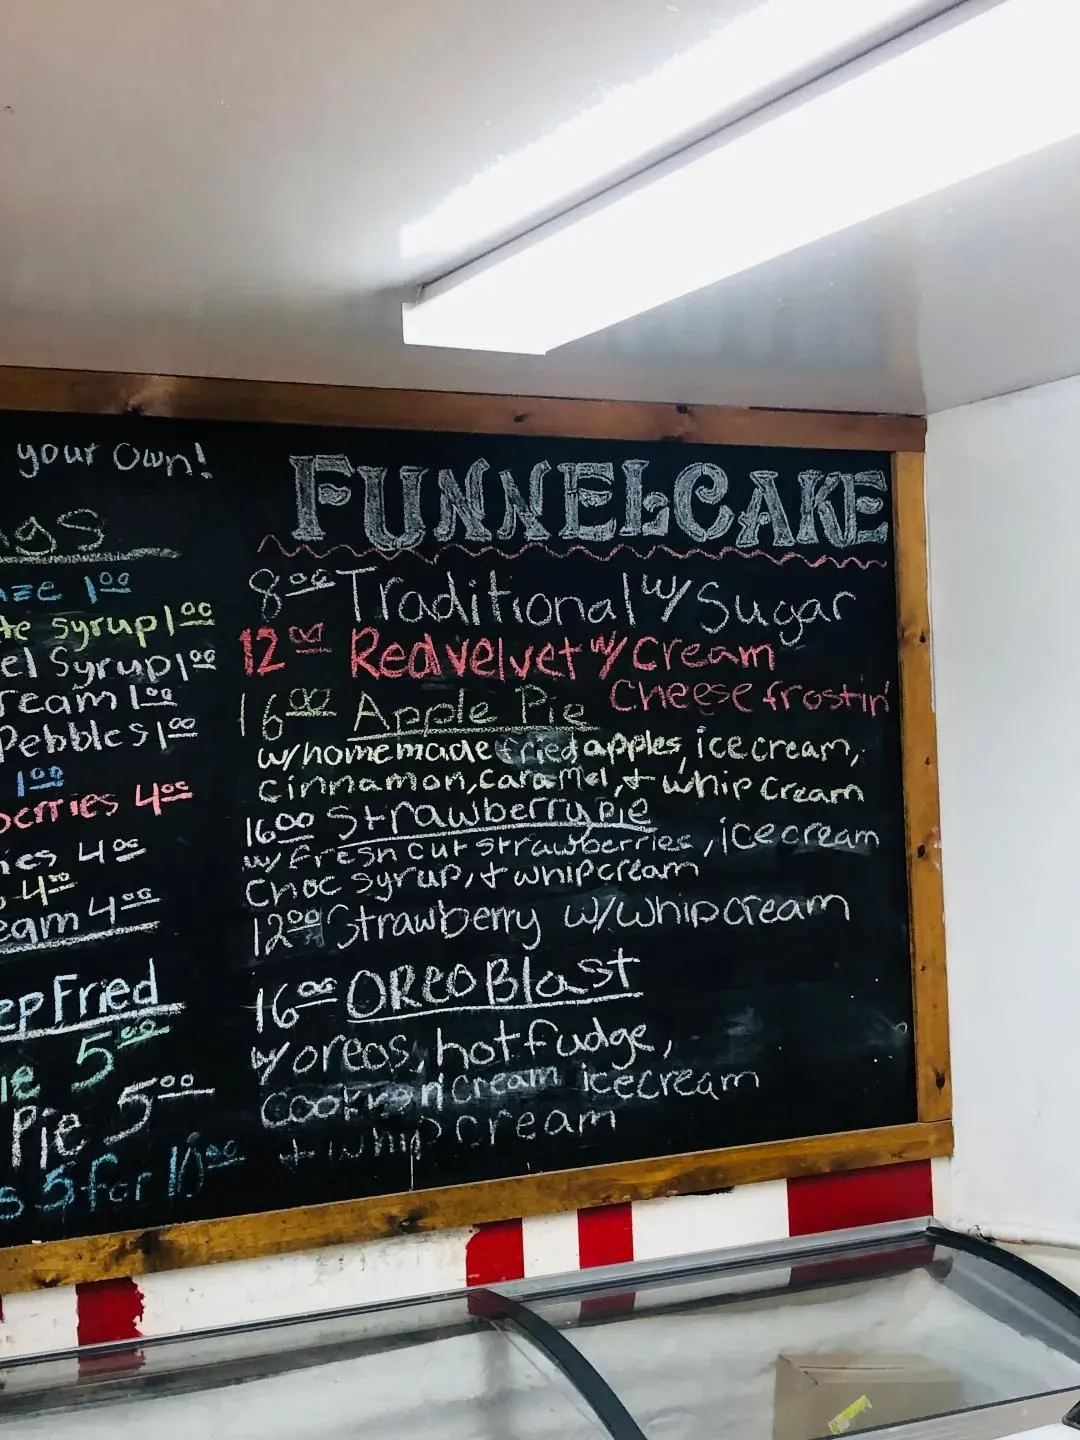 your own!
FUNNELCAKE
8.00 Traditional w/ Sugar
12.00 Redvelvet w/ cream
cheese frostin'
16.00 Apple Pie
w/homemade fried apples, icecream,
cinnamon, caramel, + whip cream
16.00 Strawberry pie
w/ fresh cut strawberries, icecream
choc syrup, + whipcream
12.00 Strawberry w/whipcream
16.00 OREO Blast
w/ oreos, hot fudge,
Cookron cream icecream
+ whip cream
1.00
syrup 1.00
Syrup 1.00
1.00
Pebbles 1.00
1.00
4.00
4.00
4.00
4.00
Fried
5.00
Pie 5.00
5 for 10.00